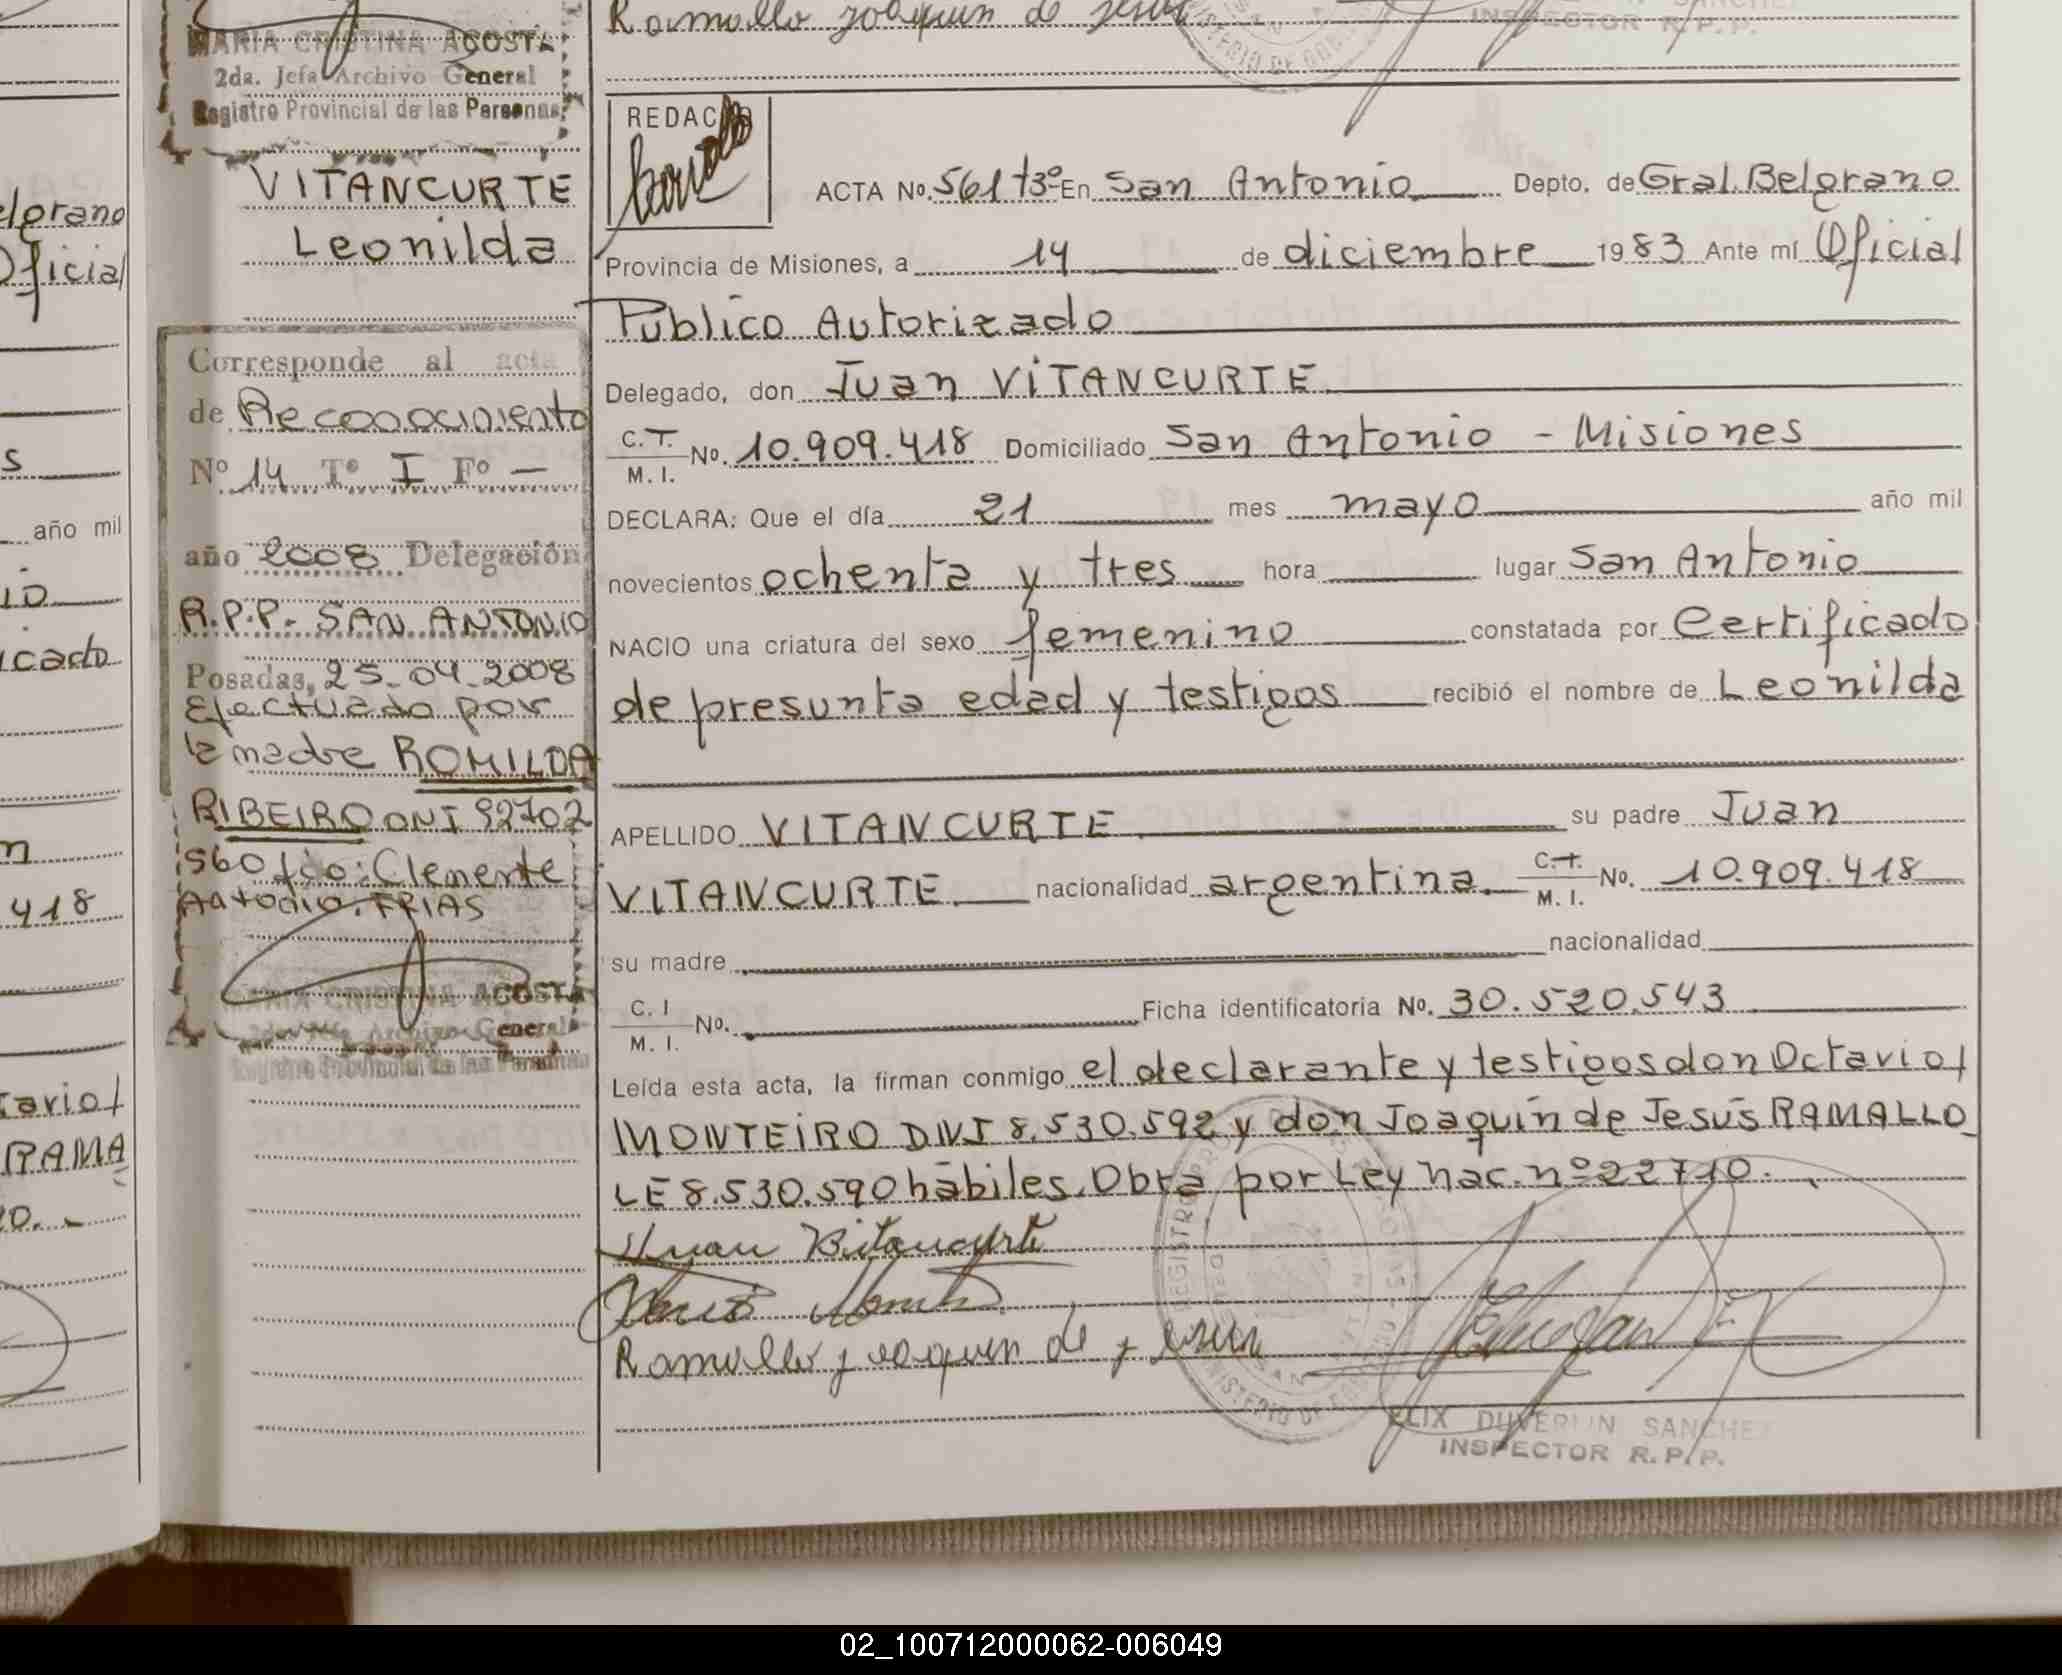 Ramallo Joaquin de Jesús
INSPECTOR R.P.P.
MARIA CRISTINA ACOSTA
2da. Jefa Archivo General
Registro Provincial de las Personas
VITANCURTE
Leonilda
Corresponde al acta
de Reconocimiento
Nº 14 Tº I Fº —
año 2008 Delegación
R.P.P. SAN ANTONIO
Posadas, 25-04-2008
Efectuado por
la madre ROMILDA
RIBEIRO DNI 92702
560 fdo: Clemente
Antonio FRIAS
MARIA CRISTINA ACOSTA
2da. Jefa Archivo General
Registro Provincial de las Personas
elgrano
Oficial
s
año mil
io
icado
n
418
tavio/
RAMA
REDAC
ACTA No. 561 tº3º En San Antonio Depto. de Gral. Belgrano
Provincia de Misiones, a 14 de diciembre 1983 Ante mí Oficial
Público Autorizado
Delegado, don Juan VITANCURTE
C.I. M.I. No. 10.909.418 Domiciliado San Antonio - Misiones
DECLARA: Que el día 21 mes mayo año mil
novecientos ochenta y tres hora lugar San Antonio
NACIO una criatura del sexo femenino constatada por Certificado
de presunta edad y testigos recibió el nombre de Leonilda
APELLIDO VITANCURTE su padre Juan
VITANCURTE nacionalidad argentina. C.I. M.I. No. 10.909.418
su madre nacionalidad
C.I M.I. No. Ficha identificatoria No. 30.520.543
Leída esta acta, la firman conmigo el declarante y testigos don Octavio/
MONTEIRO DNI 8.530.592 y don Joaquín de Jesús RAMALLO
LE 8.530.590 hábiles. Obra por Ley nac. nº 22710.
Juan Bitancurte
Ramallo Joaquin de Jesus
FELIX DUVERLIN SANCHEZ
INSPECTOR R.P.P.
02_100712000062-006049